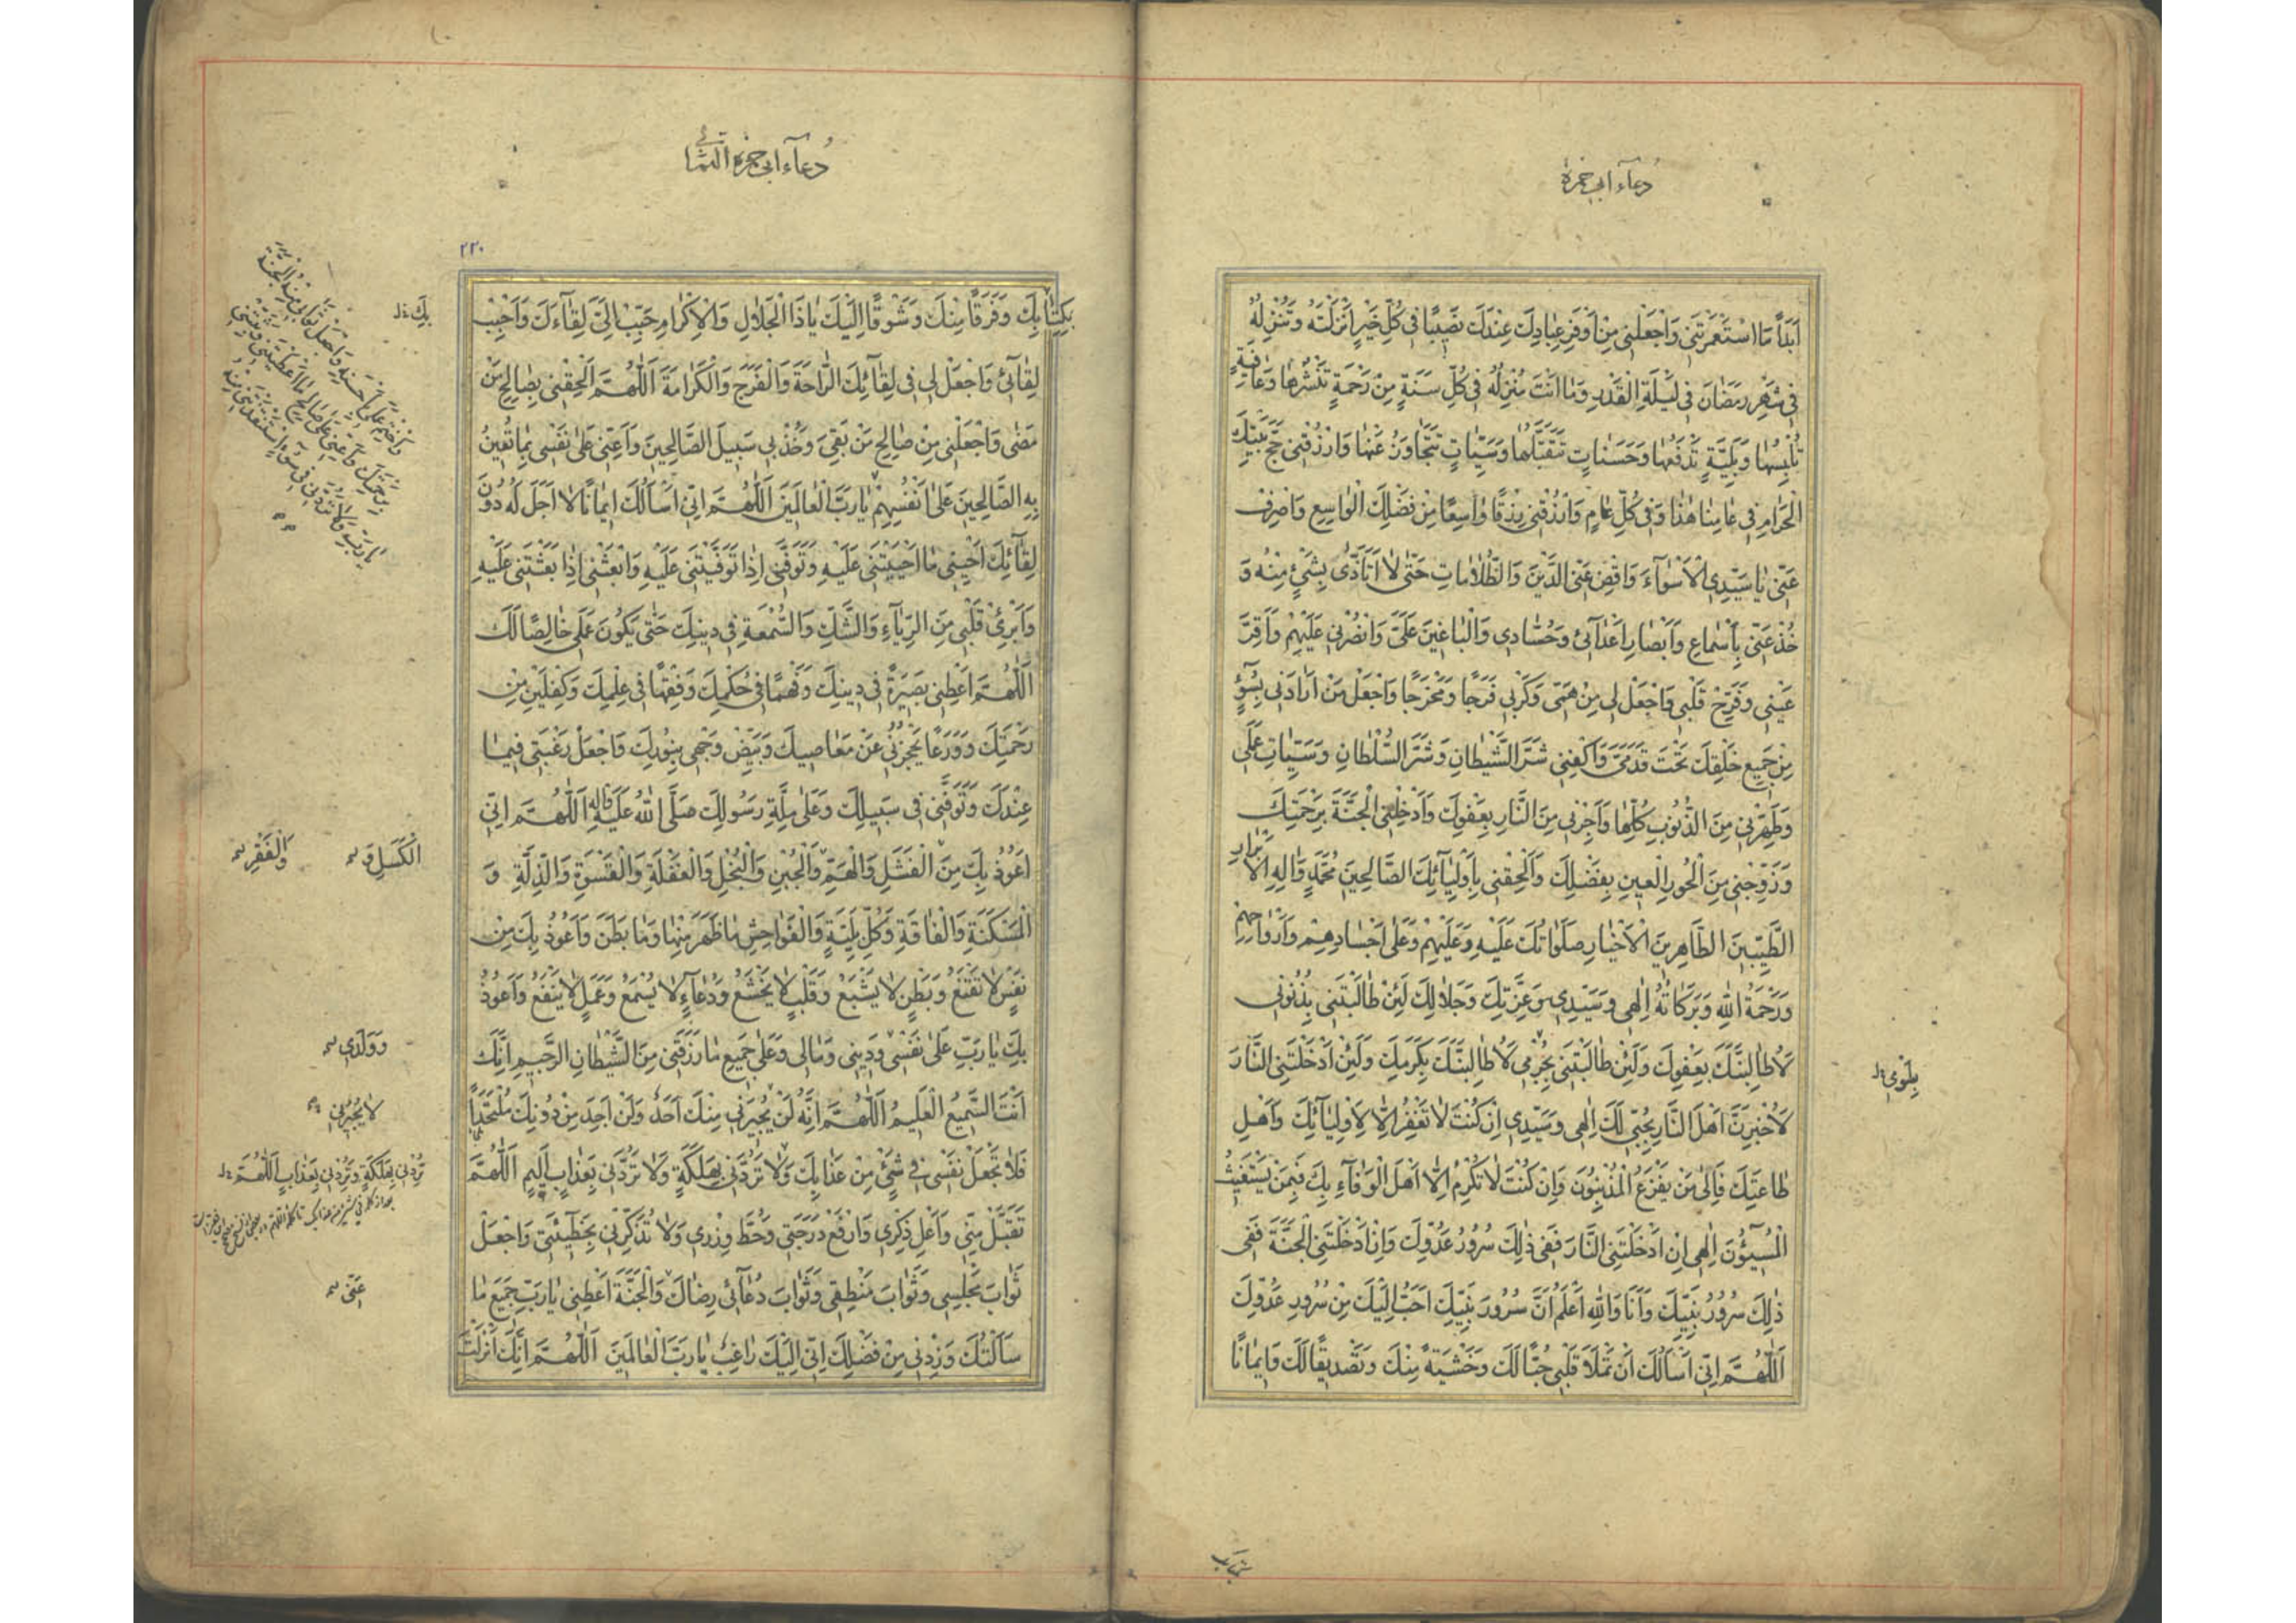 دُعآء ابی حمزة
اَبَدًا مَا اسْتَعْمَرْتَنى وَاجْعَلْنى مِنْ اَوْفَرِ عِبادِكَ عِنْدَكَ نَصيبًا فى كُلِّ خَيْرٍ اَنْزَلْتَهُ وَتُنْزِلُهُ
فى شَهْرِ رَمَضانَ فى لَيْلَةِ الْقَدْرِ وَما اَنْتَ مُنْزِلُهُ فى كُلِّ سَنَةٍ مِنْ رَحْمَةٍ تَنْشُرُها وَعافِيَةٍ
تُلْبِسُها وَبَلِيَّةٍ تَدْفَعُها وَحَسَناتٍ تَتَقَبَّلُها وَسَيِّئاتٍ تَتَجاوَزُ عَنْها وَارْزُقْنى حَجَّ بَيْتِكَ
الْحَرامِ فى عامِنا هٰذا وَفى كُلِّ عامٍ وَارْزُقْنى رِزْقًا واسِعًا مِنْ فَضْلِكَ الْواسِعِ وَاصْرِفْ
عَنّى يا سَيِّدِى الْاَسْوآءَ وَاقْضِ عَنِّى الدَّيْنَ وَالظُّلاماتِ حَتّى لا اَتَاَذّى بِشَىْءٍ مِنْهُ وَ
خُذْ عَنّى بِاَسْماعِ وَاَبْصارِ اَعْدآئى وَحُسّادى وَالْباغينَ عَلَىَّ وَانْصُرْنى عَلَيْهِمْ وَاَقِرَّ
عَيْنى وَفَرِّحْ قَلْبى وَاجْعَلْ لى مِنْ هَمّى وَكَرْبى فَرَجًا وَمَخْرَجًا وَاجْعَلْ مَنْ اَرادَنى بِسُوٓءٍ
مِنْ جَميعِ خَلْقِكَ تَحْتَ قَدَمَىَّ وَاكْفِنى شَرَّ الشَّيْطانِ وَشَرَّ السُّلْطانِ وَسَيِّئاتِ عَمَلى
وَطَهِّرْنى مِنَ الذُّنُوبِ كُلِّها وَاَجِرْنى مِنَ النّارِ بِعَفْوِكَ وَاَدْخِلْنِى الْجَنَّةَ بِرَحْمَتِكَ
وَزَوِّجْنى مِنَ الْحُورِ الْعينِ بِفَضْلِكَ وَاَلْحِقْنى بِاَوْلِيآئِكَ الصّالِحينَ مُحَمَّدٍ وَاٰلِهِ الْاَبْرارِ
الطَّيِّبينَ الطّاهِرينَ الْاَخْيارِ صَلَواتُكَ عَلَيْهِ وَعَلَيْهِمْ وَعَلى اَجْسادِهِمْ وَاَرْواحِهِمْ
وَرَحْمَةُ اللّٰهِ وَبَرَكاتُهُ اِلٰهى وَسَيِّدى وَعِزَّتِكَ وَجَلالِكَ لَئِنْ طالَبْتَنى بِذُنُوبى
لَاُطالِبَنَّكَ بِعَفْوِكَ وَلَئِنْ طالَبْتَنى بِجُرْمى لَاُطالِبَنَّكَ بِكَرَمِكَ وَلَئِنْ اَدْخَلْتَنِى النّارَ
لَاُخْبِرَنَّ اَهْلَ النّارِ بِحُبّى لَكَ اِلٰهى وَسَيِّدى اِنْ كُنْتَ لا تَغْفِرُ اِلّا لِاَوْلِيآئِكَ وَاَهْلِ
طاعَتِكَ فَاِلى مَنْ يَفْزَعُ الْمُذْنِبُونَ وَاِنْ كُنْتَ لا تُكْرِمُ اِلّا اَهْلَ الْوَفآءِ بِكَ فَبِمَنْ يَسْتَغيثُ
الْمُسيٓئُونَ اِلٰهى اِنْ اَدْخَلْتَنِى النّارَ فَفى ذٰلِكَ سُرُورُ عَدُوِّكَ وَاِنْ اَدْخَلْتَنِى الْجَنَّةَ فَفى
ذٰلِكَ سُرُورُ نَبِيِّكَ وَاَنَا وَاللّٰهِ اَعْلَمُ اَنَّ سُرُورَ نَبِيِّكَ اَحَبُّ اِلَيْكَ مِنْ سُرُورِ عَدُوِّكَ
اَللّٰهُمَّ اِنّى اَسْاَلُكَ اَنْ تَمْلَأَ قَلْبى حُبًّا لَكَ وَخَشْيَةً مِنْكَ وَتَصْديقًا لَكَ وَايمانًا
دُعآء ابی حمزة الثمالی
۲۲۰
بِكِتابِكَ وَفَرَقًا مِنْكَ وَشَوْقًا اِلَيْكَ يا ذَا الْجَلالِ وَالْاِكْرامِ حَبِّبْ اِلَىَّ لِقآءَكَ وَاَحْبِبْ
لِقآئى وَاجْعَلْ لى فى لِقآئِكَ الرّاحَةَ وَالْفَرَجَ وَالْكَرامَةَ اَللّٰهُمَّ اَلْحِقْنى بِصالِحِ مَنْ
مَضى وَاجْعَلْنى مِنْ صالِحِ مَنْ بَقِىَ وَخُذْ بى سَبيلَ الصّالِحينَ وَاَعِنّى عَلى نَفْسى بِما تُعينُ
بِهِ الصّالِحينَ عَلى اَنْفُسِهِمْ يا رَبَّ الْعالَمينَ اَللّٰهُمَّ اِنّى اَسْاَلُكَ ايمانًا لا اَجَلَ لَهُ دُونَ
لِقآئِكَ اَحْيِنى ما اَحْيَيْتَنى عَلَيْهِ وَتَوَفَّنى اِذا تَوَفَّيْتَنى عَلَيْهِ وَابْعَثْنى اِذا بَعَثْتَنى عَلَيْهِ
وَاَبْرِئْ قَلْبى مِنَ الرِّيآءِ وَالشَّكِّ وَالسُّمْعَةِ فى دينِكَ حَتّى يَكُونَ عَمَلى خالِصًا لَكَ
اَللّٰهُمَّ اَعْطِنى بَصيرَةً فى دينِكَ وَفَهْمًا فى حُكْمِكَ وَفِقْهًا فى عِلْمِكَ وَكِفْلَيْنِ مِنْ
رَحْمَتِكَ وَوَرَعًا يَحْجُزُنى عَنْ مَعاصيكَ وَبَيِّضْ وَجْهى بِنُورِكَ وَاجْعَلْ رَغْبَتى فيما
عِنْدَكَ وَتَوَفَّنى فى سَبيلِكَ وَعَلى مِلَّةِ رَسُولِكَ صَلَّى اللّٰهُ عَلَيْهِ وَاٰلِهِ اَللّٰهُمَّ اِنّى
اَعُوذُ بِكَ مِنَ الْفَشَلِ وَالْهَمِّ وَالْجُبْنِ وَالْبُخْلِ وَالْغَفْلَةِ وَالْقَسْوَةِ وَالذِّلَّةِ وَ
الْمَسْكَنَةِ وَالْفاقَةِ وَكُلِّ بَلِيَّةٍ وَالْفَواحِشِ ما ظَهَرَ مِنْها وَما بَطَنَ وَاَعُوذُ بِكَ مِنْ
نَفْسٍ لا تَقْنَعُ وَبَطْنٍ لا يَشْبَعُ وَقَلْبٍ لا يَخْشَعُ وَدُعآءٍ لا يُسْمَعُ وَعَمَلٍ لا يَنْفَعُ وَاَعُوذُ
بِكَ يا رَبِّ عَلى نَفْسى وَدينى وَمالى وَعَلى جَميعِ ما رَزَقْتَنى مِنَ الشَّيْطانِ الرَّجيمِ اِنَّكَ
اَنْتَ السَّميعُ الْعَليمُ اَللّٰهُمَّ اِنَّهُ لَنْ يُجيرَنى مِنْكَ اَحَدٌ وَلَنْ اَجِدَ مِنْ دُونِكَ مُلْتَحَدًا
فَلا تَجْعَلْ نَفْسى فى شَىْءٍ مِنْ عَذابِكَ وَلا تَرُدَّنى بِهَلَكَةٍ وَلا تَرُدَّنى بِعَذابٍ اَليمٍ اَللّٰهُمَّ
تَقَبَّلْ مِنّى وَاَعْلِ ذِكْرى وَارْفَعْ دَرَجَتى وَحُطَّ وِزْرى وَلا تَذْكُرْنى بِخَطيٓئَتى وَاجْعَلْ
ثَوابَ مَجْلِسى وَثَوابَ مَنْطِقى وَثَوابَ دُعآئى رِضاكَ وَالْجَنَّةَ اَعْطِنى يا رَبِّ جَميعَ ما
سَاَلْتُكَ وَزِدْنى مِنْ فَضْلِكَ اِنّى اِلَيْكَ راغِبٌ يا رَبَّ الْعالَمينَ اَللّٰهُمَّ اِنَّكَ اَنْزَلْتَ
بِكَ
الْكَسَلِ وَ
وَالْفَقْرِ
وَوَلَدى
لا يُجيرُنى
تَرُدَّنى بِهَلَكَةٍ وَتَرُدَّنى بِعَذابٍ اَللّٰهُمَّ
عَنّى